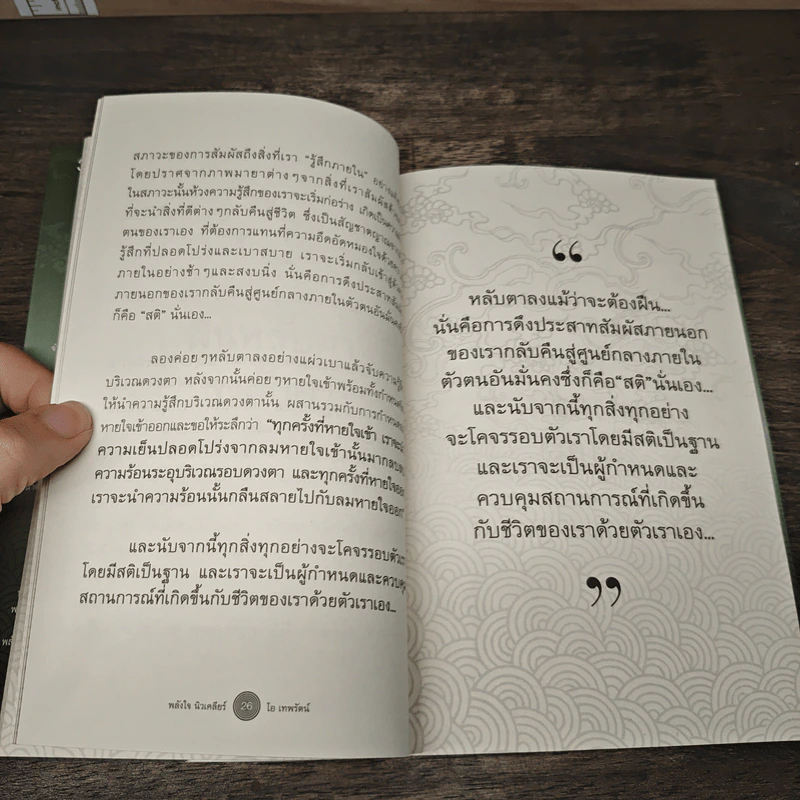 สภาวะของการสัมผัสถึงสิ่งที่เรา “รู้สึกภายใน”
โดยปราศจากภาพมายาต่างๆจากสิ่งที่เราสัมผัส
ในสภาวะนั้นห้วงความรู้สึกของเราจะเริ่มก่อร่าง
ที่จะนำสิ่งที่ดีต่างๆกลับคืนสู่ชีวิต ซึ่งเป็นสัญชาตญาณ
ตนของเราเอง ที่ต้องการแทนที่ความอึดอัดหมองใจ
รู้สึกที่ปลอดโปร่งและเบาสบาย เราจะเริ่มกลับเข้าสู่
ภายในอย่างช้าๆและสงบนิ่ง นั่นคือการดึงประสาทสัมผัส
ภายนอกของเรากลับคืนสู่ศูนย์กลางภายในตัวตนอันมั่นคง
ก็คือ “สติ” นั่นเอง...
ลองค่อยๆหลับตาลงอย่างแผ่วเบาแล้วจับความรู้สึก
บริเวณดวงตา หลังจากนั้นค่อยๆหายใจเข้าพร้อมทั้งกำหนด
ให้นำความรู้สึกบริเวณดวงตานั้น ผสานรวมกับการกำหนด
หายใจเข้าออกและขอให้ระลึกว่า “ทุกครั้งที่หายใจเข้า
ความเย็นปลอดโปร่งจากลมหายใจเข้านั้นมา
ความร้อนระอุบริเวณรอบดวงตา และทุกครั้งที่หายใจออก
เราจะนำความร้อนนั้นกลืนสลายไปกับลมหายใจออก”
และนับจากนี้ทุกสิ่งทุกอย่างจะโคจรรอบตัวเรา
โดยมีสติเป็นฐาน และเราจะเป็นผู้กำหนดและควบคุม
สถานการณ์ที่เกิดขึ้นกับชีวิตของเราด้วยตัวเราเอง...
พลังใจ นิวเคลียร์ 26 โอ เทพรัตน์
“
หลับตาลงแม้ว่าจะต้องฝืน...
นั่นคือการดึงประสาทสัมผัสภายนอก
ของเรากลับคืนสู่ศูนย์กลางภายใน
ตัวตนอันมั่นคงซึ่งก็คือ“สติ”นั่นเอง...
และนับจากนี้ทุกสิ่งทุกอย่าง
จะโคจรรอบตัวเราโดยมีสติเป็นฐาน
และเราจะเป็นผู้กำหนดและ
ควบคุมสถานการณ์ที่เกิดขึ้น
กับชีวิตของเราด้วยตัวเราเอง...
”